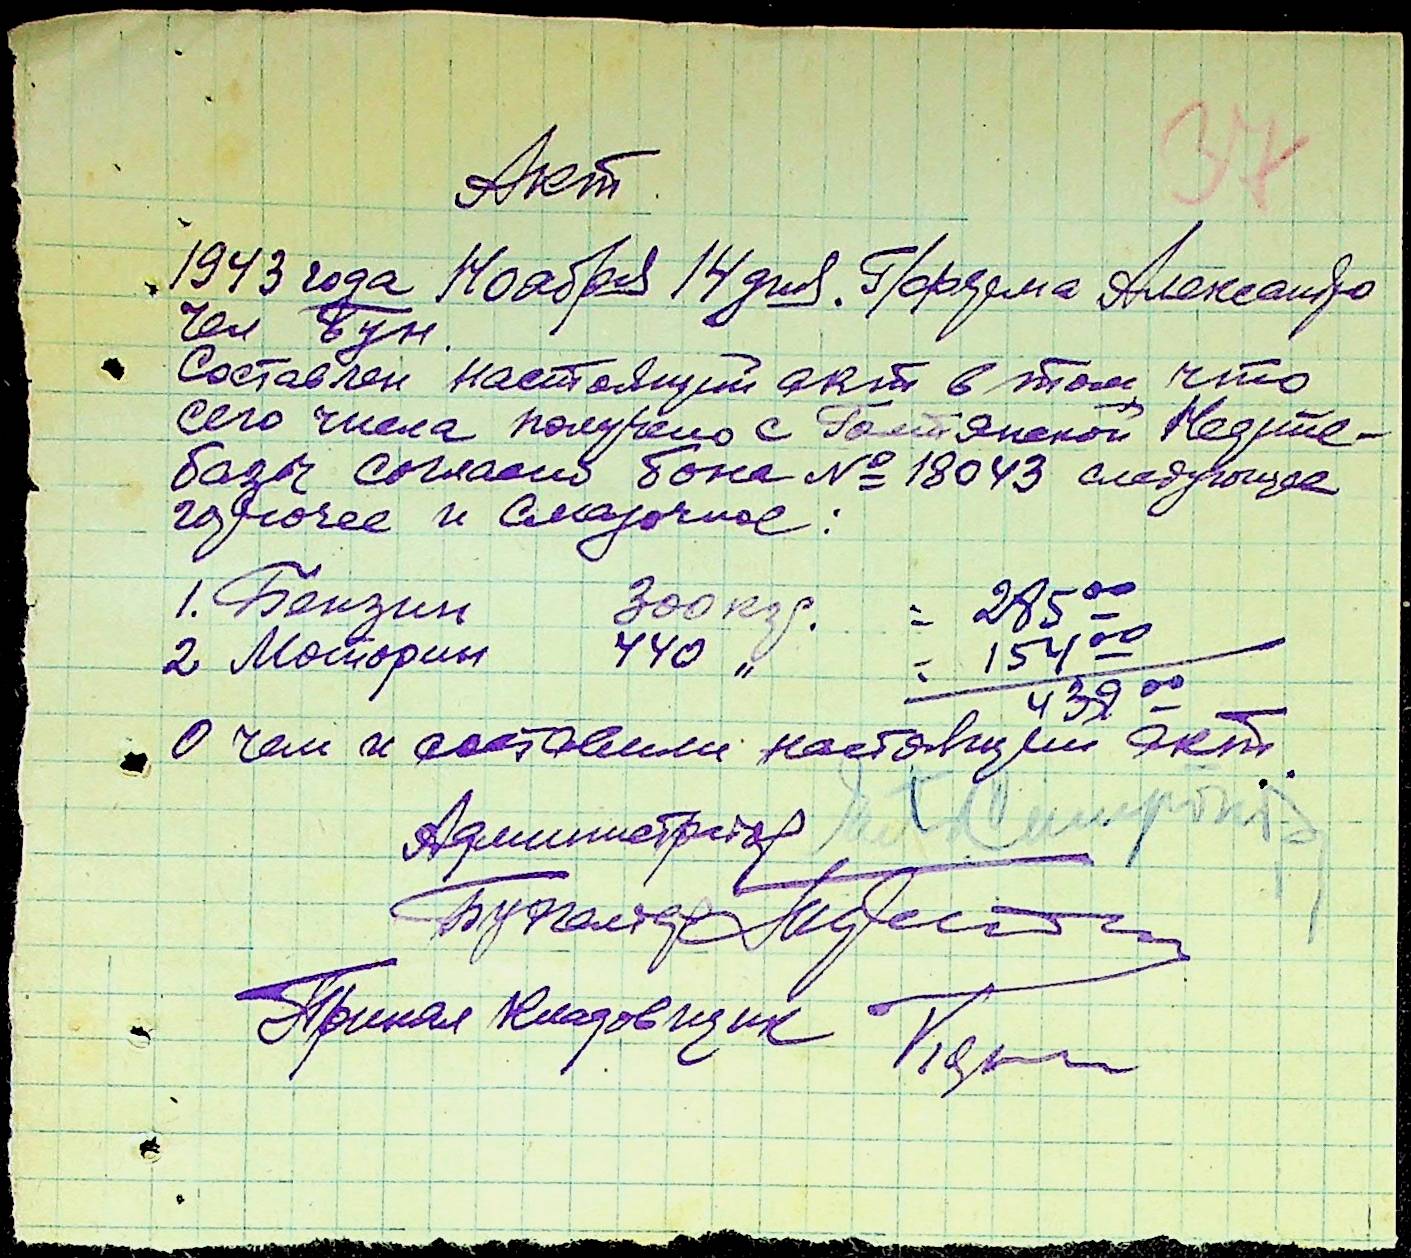 37
Акт.
1943 года Ноября 14 дня. П/ферма Александро
чел Бун.
Составлен настоящий акт в том, что
сего числа получено с Голтянской Нефте-
базы согласно бона № 18043 следующее
горючее и смазочное:
1. Бензин 300 кгр. = 285 00
2 Моторин 440 " = 154 00
439 00
О чем и составили настоящий акт.
Администратор
Бухгалтер
Принял Кладовщик